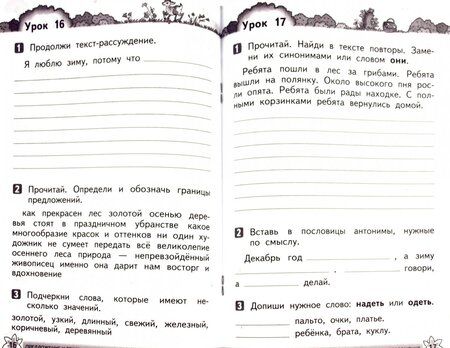 Урок 16
1 Продолжи текст-рассуждение.
Я люблю зиму, потому что
2 Прочитай. Определи и обозначь границы
предложений.
как прекрасен лес золотой осенью дере-
вья стоят в праздничном убранстве какое
многообразие красок и оттенков ни один ху-
дожник не сумеет передать всё великолепие
осеннего леса природа — непревзойдённый
живописец именно она дарит нам восторг и
вдохновение
3 Подчеркни слова, которые имеют не-
сколько значений.
золотой, узкий, длинный, свежий, железный,
коричневый, деревянный
16
Урок 17
1 Прочитай. Найди в тексте повторы. Заме-
ни их синонимами или словом они.
Ребята пошли в лес за грибами. Ребята
вышли на полянку. Около высокого пня рос-
ли опята. Ребята были рады находке. С пол-
ными корзинками ребята вернулись домой.
2 Вставь в пословицы антонимы, нужные
по смыслу.
Декабрь год , а зиму
говори,
а делай.
3 Допиши нужное слово: надеть или одеть.
пальто, очки, платье.
ребёнка, брата, куклу.
17